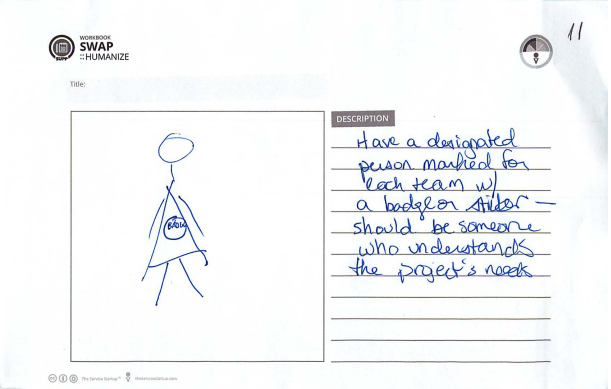 WORKBOOK
SWAP
::HUMANIZE
11
Title:
DESCRIPTION
Have a designated
person marked for
each team w/
a badge or sticker —
should be someone
who understands
the project's needs
BADGE
The Service Startup™
theservicestartup.com